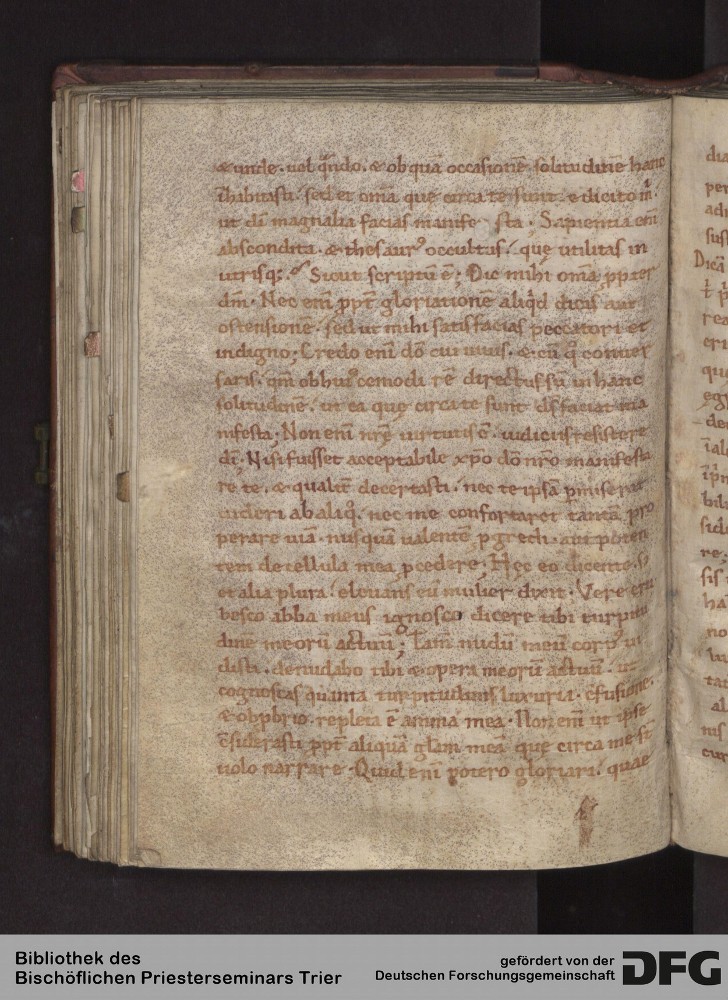 & unde. uel q̄ndo. & ob quā occasionē solitudinē hanc
īhabitasti. sed et om̄a que circa te sunt. edicito m̄.
ut dī magnalia facias manife sta. Sapientia enī
abscondita. & thesaurꝰ occultus. que utilitas in
utrisq; Sicut scriptū ē; Dic mihi om̄a ꝓpter
dm̄. Nec enī ꝓpt̄ gloriationē aliq̇d dicis aut
ostensionē. sed ut mihi satisfacias peccatori et
indigno; Credo enī dō cui uiuis. & cū q̇ conuer
saris. qm̄ ob huiꝰcemodi rē directus sū in hanc
solitudinē. ut ea que circa te sunt d̄s faciat ma
nifesta; Non enī nr̄e uirtutis ē. iudiciis resistere
dī; Nisi fuisset acceptabile xp̄o dō nr̄o manifesta
re te. & qualit̄ decertasti. nec te ipsā ꝑmiserat
uideri ab aliq̇. nec me confortaret tantā pro
perare uiā. nusquā ualentē ꝓgredi. aut poten
tem de cellula mea ꝓcedere. Hec eo dicente. &
et alia plura. eleuans eū mulier dixit. Vere eru
besco abba meus ignosco dicere tibi turpitu
dinē meorū actuū; Tam̄ nudū meū corpꝰ ui
disti. denudabo tibi & opera meorū actuū. ut
cognoscas quanta turpitudinis luxuria. c̄fusione.
& obꝓbrio. repleta ē anima mea. Non enī ut ipse
c̄siderasti ꝓpt̄ aliquā gl̄am meā que circa me st̄
uolo narrare. Quid enī potero gloriari. quae
Bibliothek des
Bischöflichen Priesterseminars Trier
gefördert von der
Deutschen Forschungsgemeinschaft
DFG